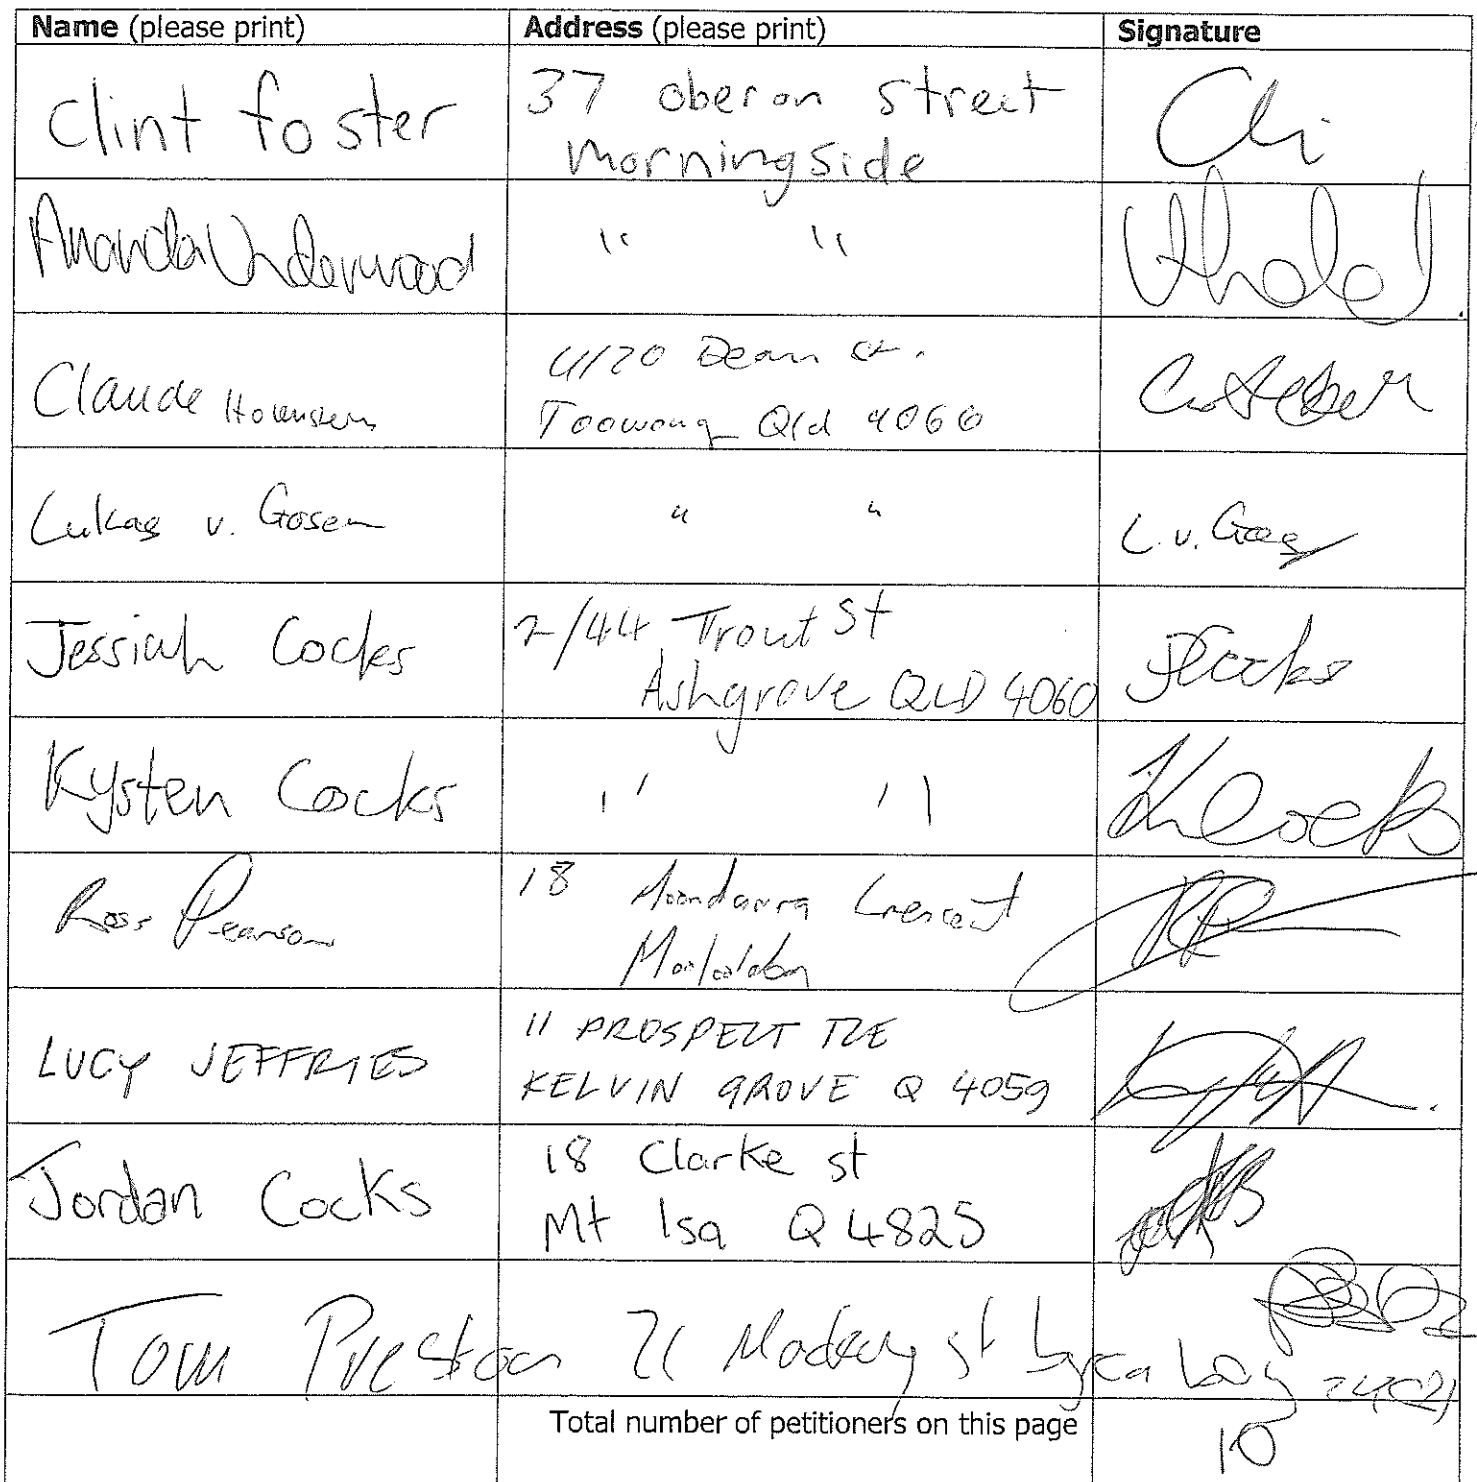 Name (please print) Address (please print) Signature
Clint foster 37 oberon street
morningside
Amanda Underwood " "
Claude 4/20 Dean St.
Toowong Qld 4066
Lukas v. Gosen " " L. v.
Jessiah Cocks 2/44 Trout St JCocks
Ashgrove QLD 4060
Kysten Cocks " " KCocks
Ross Pearson 18 Moondarra Crescent
Mooloolaba
LUCY JEFFRIES 11 PROSPECT TCE
KELVIN GROVE Q 4059
Jordan Cocks 18 Clarke st
Mt Isa Q 4825
Tom Preston st
Total number of petitioners on this page 10